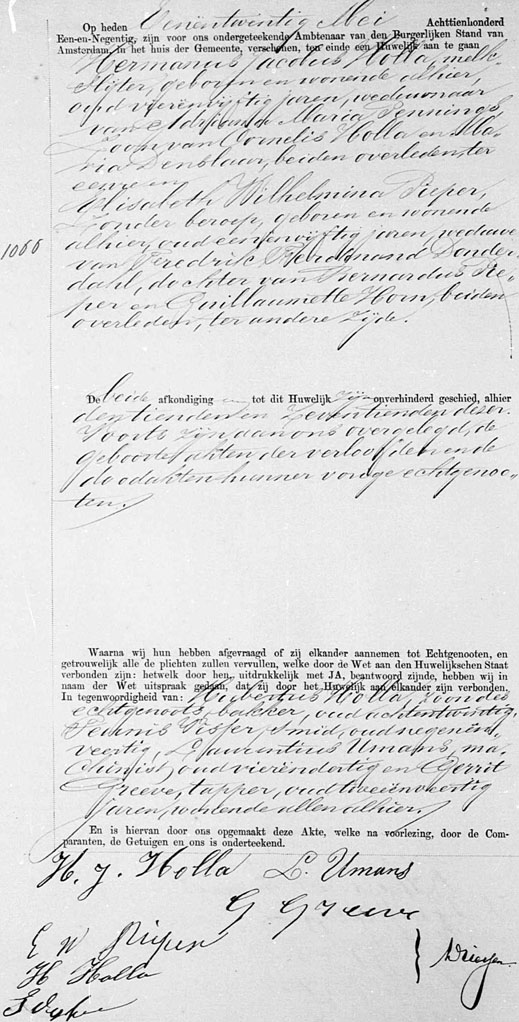 Op heden Vierentwintig Mei Achttienhonderd
Een-en-Negentig, zijn voor ons ondergeteekende Ambtenaar van den Burgerlijken Stand van
Amsterdam, in het huis der Gemeente, verschenen, ten einde een Huwelijk aan te gaan
Hermanus Jacobus Holla, melk-
slijter, geboren en wonende alhier,
oud vierenvijftig jaren, weduwnaar
van Adriana Maria Pennings
Zoon van Cornelis Holla en Ma-
ria Denslaar, beiden overleden, ter
eenre en
Elisabeth Wilhelmina Pieper,
Zonder beroep, geboren en wonende
alhier, oud eenenvijftig jaren, weduwe
1066
van Fredrik Ferdinand Donder-
dahl, dochter van Bernardus Pie-
per en Guillaumette Horn, beiden
overleden, ter andere zijde.
De beide afkondigingen tot dit Huwelijk zijn onverhinderd geschied, alhier
den tienden en Zeventienden dezer.
Voorts zijn aan ons overgelegd, de
geboorteakten der verloofden en de
doodakten hunner vorige echtgenoo-
ten.
Waarna wij hun hebben afgevraagd of zij elkander aannemen tot Echtgenooten, en
getrouwelijk alle de plichten zullen vervullen, welke door de Wet aan den Huwelijkschen Staat
verbonden zijn: hetwelk door hen, uitdrukkelijk met JA, beantwoord zijnde, hebben wij in
naam der Wet uitspraak gedaan, dat zij door het Huwelijk aan elkander zijn verbonden.
In tegenwoordigheid van: Hubertus Holla, zoon des
echtgenoots, bakker, oud achtentwintig,
Visser, Smid, oud negenen-
veertig, Laurentius Umans, ma-
chinist, oud vierendertig en Gerrit
Greeve, tapper, oud tweeenveertig
jaren, wonende allen alhier.
En is hiervan door ons opgemaakt deze Akte, welke na voorlezing, door de Com-
paranten, de Getuigen en ons is onderteekend.
H. J. Holla L. Umans
G Greeve
E W Pieper
H Holla